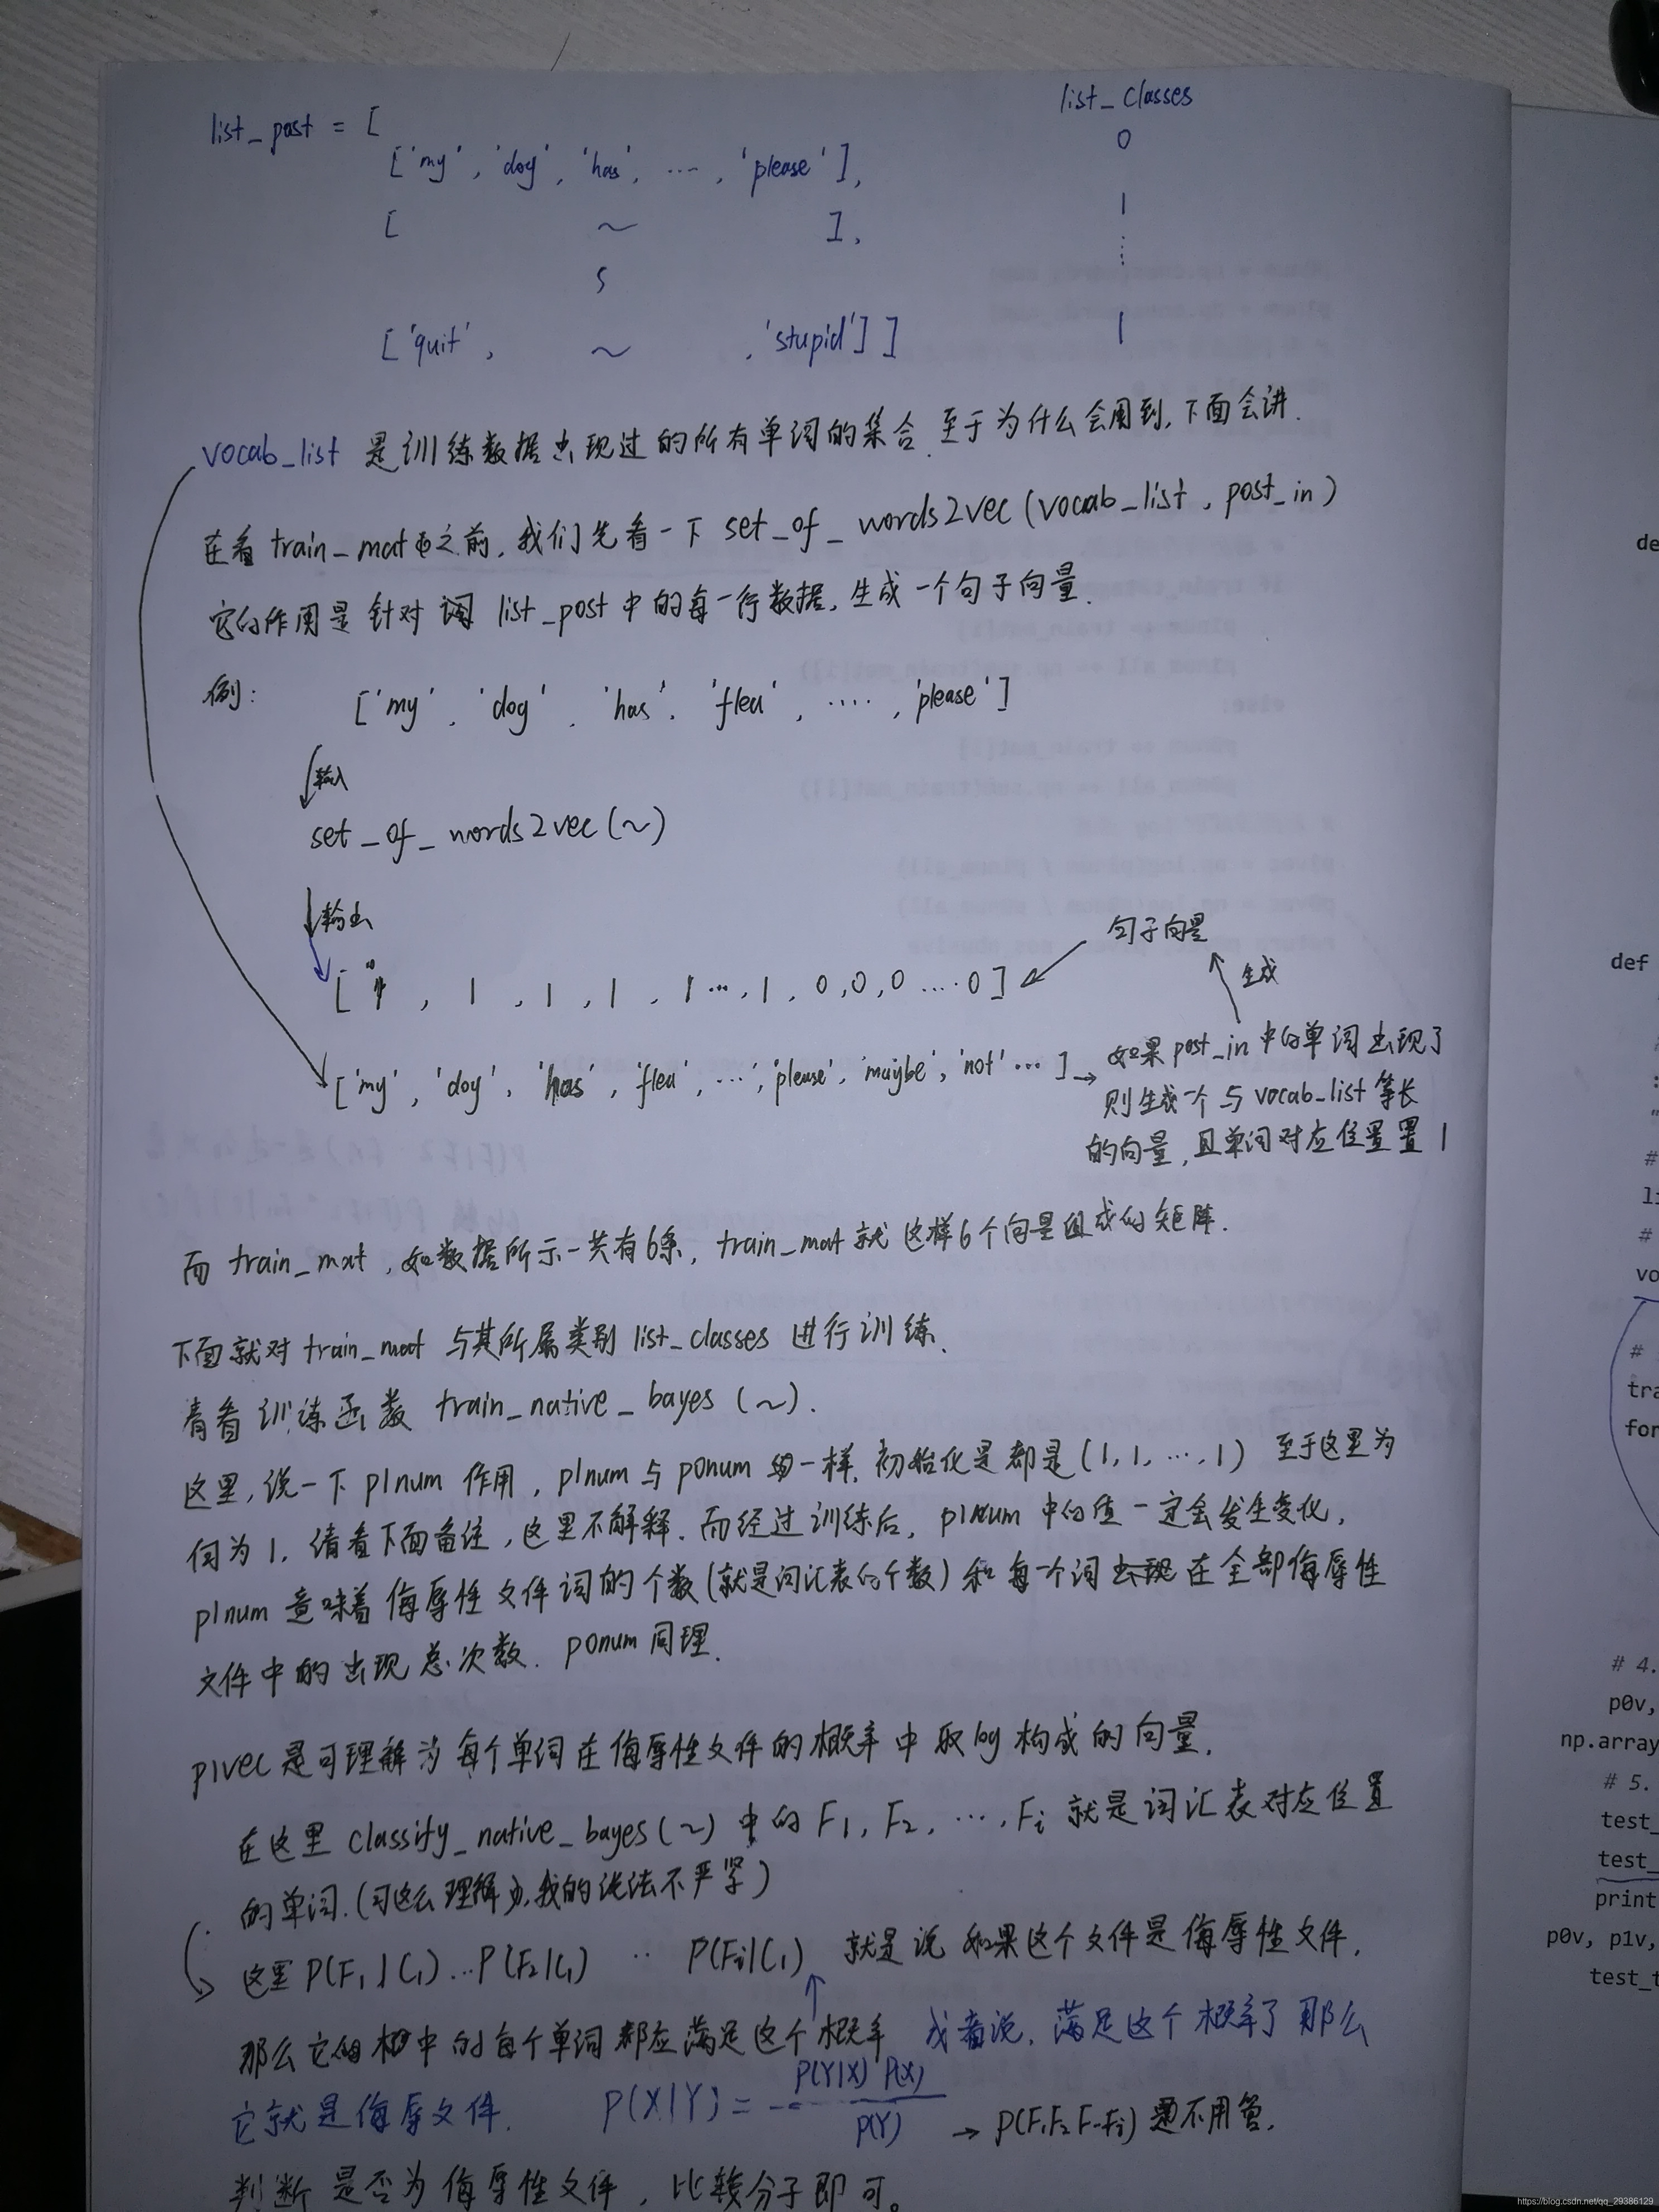 list_classes
list_post = [
0
['my', 'dog', 'has', ···, 'please'],
1
[ ~ ],
['quit', ~ , 'stupid'] ]
1
vocab_list 是训练数据出现过的所有单词的集合. 至于为什么会用到, 下面会讲.
在看 train_mat 之前, 我们先看一下 set_of_words2vec(vocab_list, post_in)
它的作用是针对 list_post 中的每一行数据, 生成一个句子向量.
例: ['my', 'dog', 'has', 'flea', ····, 'please']
输入
set_of_words2vec(~)
输出
句子向量
生成
[ 1, 1, 1, 1, 1 ···, 1, 0, 0, 0 ····0]
['my', 'dog', 'has', 'flea', ···, 'please', 'maybe', 'not' ···] → 如果 post_in 中的单词出现了
则生成一个与 vocab_list 等长
的向量, 且单词对应位置置 1
而 train_mat, 如数据所示一共有6条, train_mat 就这样6个向量组成的矩阵.
下面就对 train_mat 与其所属类别 list_classes 进行训练.
请看训练函数 train_native_bayes (~).
这里, 说一下 p1num 作用, p1num 与 p0num 一样, 初始化是都是 (1, 1, ···, 1) 至于这里为
何为 1, 请看下面备注, 这里不解释. 而经过训练后, p1num 中的值一定会发生变化,
p1num 意味着侮辱性文件词的个数(就是词汇表的个数)和每一个词出现在全部侮辱性
文件中的出现总次数. p0num 同理.
p1vec 是可理解为每个单词在侮辱性文件的概率中取log构成的向量.
在这里 classify_native_bayes(~) 中的 F1, F2, ···, Fi 就是词汇表对应位置
的单词. (可这么理解, 我的说法不严谨)
这里 P(F1|C1)...P(F2|C1) ·· P(Fi|C1) 就是说如果这个文件是侮辱性文件,
那么它中的每个单词都应满足这个概率 或者说, 满足这个概率了那么
它就是侮辱文件. P(X|Y) = P(Y|X) P(X) / P(Y) → P(F1F2F··Fi) 不用管.
判断是否为侮辱性文件, 比较分子即可。
de
def
#
li
#
vo
#
tra
for
# 4.
p0v,
np.array
# 5.
test_
test_
print
p0v, p1v,
test_t
https://blog.csdn.net/qq_29386129